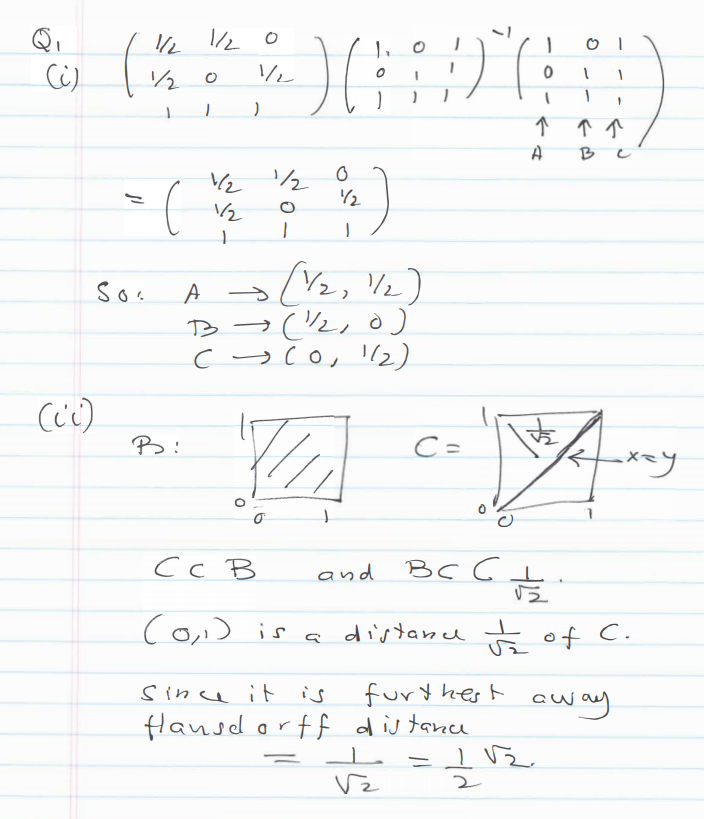 Q1
(i) ( 1/2 1/2 0 ) ( 1. 0 1 )^-1 ( 1 0 1 )
( 1/2 0 1/2 ) ( 0 1 1 ) ( 0 1 1 )
( 1 1 1 ) ( 1 1 1 ) ( 1 1 1 )
↑ ↑ ↑
A B C
= ( 1/2 1/2 0 )
( 1/2 0 1/2 )
( 1 1 1 )
So: A → (1/2, 1/2)
B → (1/2, 0)
C → (0, 1/2)
(ii)
B: 1 0 0 1
C = 1 1/√2 x=y 0 0 1
C ⊂ B and B ⊂ C 1/√2.
(0,1) is a distance 1/√2 of C.
since it is furthest away
Hausdorff distance
= 1/√2 = 1/2 √2.